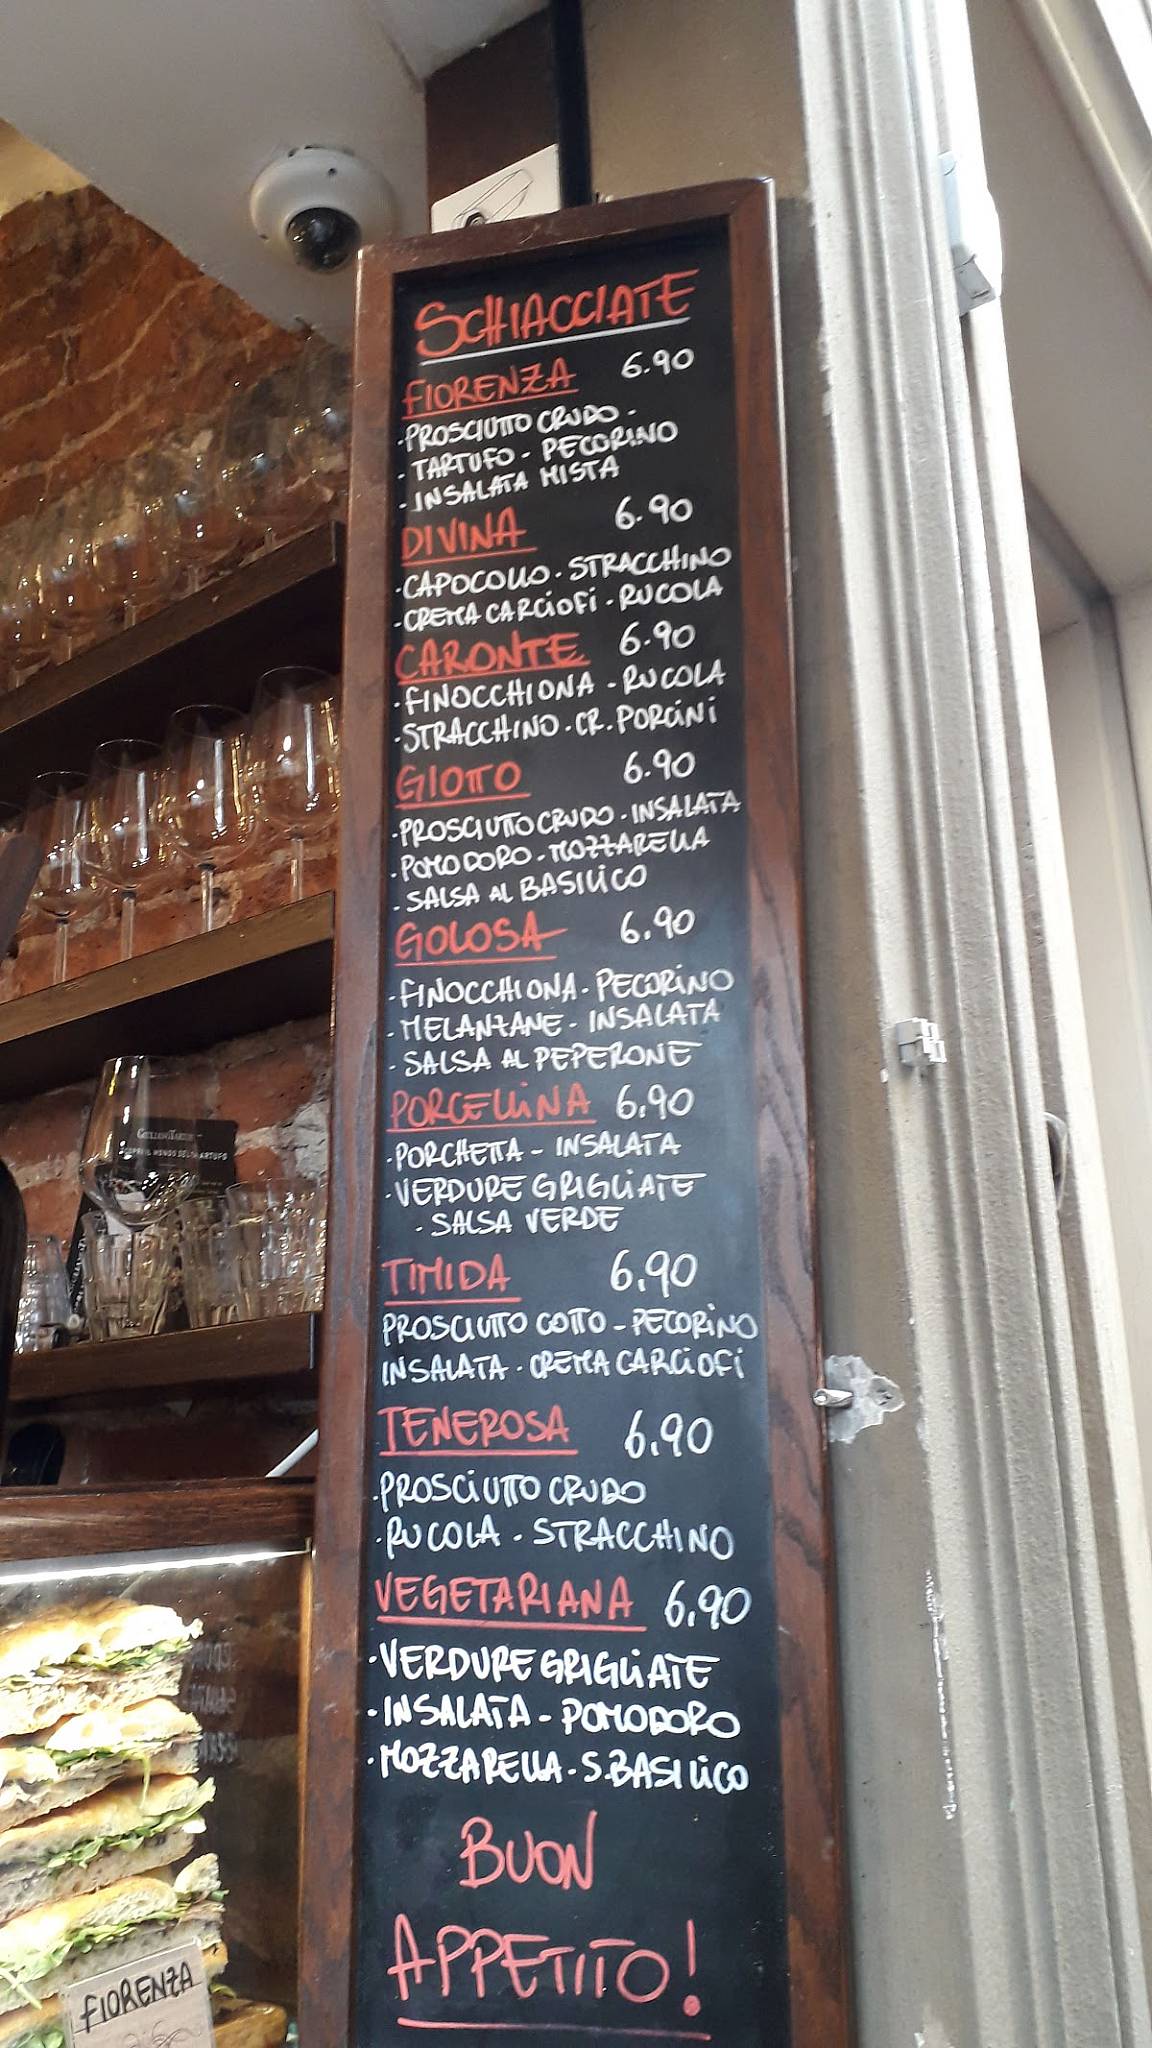 SCHIACCIATE
FIORENZA 6.90
·PROSCIUTTO CRUDO-
·TARTUFO- PECORINO
·INSALATA MISTA
DIVINA 6.90
·CAPOCOLLO·STRACCHINO
·CREMA CARCIOFI·RUCOLA
CARONTE 6.90
·FINOCCHIONA-RUCOLA
·STRACCHINO·CR.PORCINI
GIOTTO 6.90
·PROSCIUTTO CRUDO·INSALATA
·POMODORO-MOZZARELLA
·SALSA AL BASILICO
GOLOSA 6.90
·FINOCCHIONA·PECORINO
·MELANZANE-INSALATA
·SALSA AL PEPERONE
PORCELLINA 6.90
·PORCHETTA-INSALATA
·VERDURE GRIGLIATE
·SALSA VERDE
TIMIDA 6.90
PROSCIUTTO COTTO-PECORINO
INSALATA·CREMA CARCIOFI
TENEROSA 6.90
·PROSCIUTTO CRUDO
·RUCOLA-STRACCHINO
VEGETARIANA 6.90
·VERDURE GRIGLIATE
·INSALATA-POMODORO
·MOZZARELLA-S.BASILICO
BUON
APPETITO!
FIORENZA